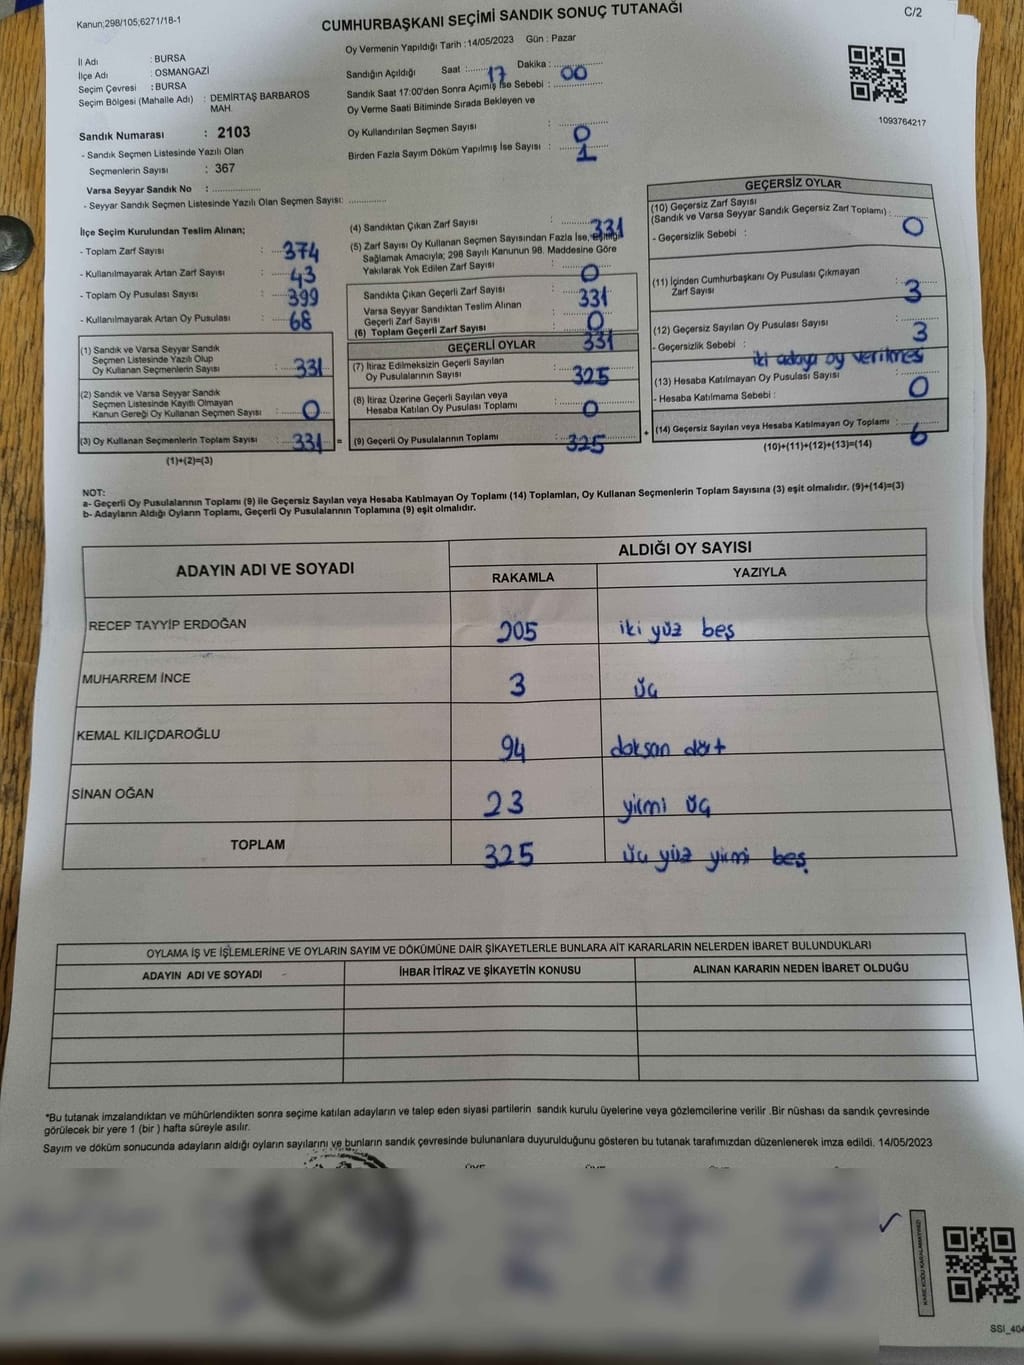 Kanun;298/105;6271/18-1
CUMHURBAŞKANI SEÇİMİ SANDIK SONUÇ TUTANAĞI
C/2
Oy Vermenin Yapıldığı Tarih :14/05/2023 Gün : Pazar
İl Adı : BURSA
İlçe Adı : OSMANGAZİ
Seçim Çevresi : BURSA
Seçim Bölgesi (Mahalle Adı) : DEMİRTAŞ BARBAROS
MAH.
Sandık Numarası : 2103
- Sandık Seçmen Listesinde Yazılı Olan
Seçmenlerin Sayısı : 367
Varsa Seyyar Sandık No : ..................
- Seyyar Sandık Seçmen Listesinde Yazılı Olan Seçmen Sayısı: .............
Sandığın Açıldığı Saat : 17 Dakika : 00
Sandık Saat 17:00'den Sonra Açımış İse Sebebi :
Oy Verme Saati Bitiminde Sırada Bekleyen ve
Oy Kullandırılan Seçmen Sayısı : 0
Birden Fazla Sayım Döküm Yapılmış İse Sayısı : 1
1093764217
İlçe Seçim Kurulundan Teslim Alınan;
- Toplam Zarf Sayısı : 374
- Kullanılmayarak Artan Zarf Sayısı : 43
- Toplam Oy Pusulası Sayısı : 399
- Kullanılmayarak Artan Oy Pusulası : 68
(1) Sandık ve Varsa Seyyar Sandık
Seçmen Listesinde Yazılı Olup
Oy Kullanan Seçmenlerin Sayısı : 331
(2) Sandık ve Varsa Seyyar Sandık
Seçmen Listesinde Kayıtlı Olmayan
Kanun Gereği Oy Kullanan Seçmen Sayısı : 0
(3) Oy Kullanan Seçmenlerin Toplam Sayısı : 331 =
(1)+(2)=(3)
(4) Sandıktan Çıkan Zarf Sayısı : 331
(5) Zarf Sayısı Oy Kullanan Seçmen Sayısından Fazla İse, Eşitliği
Sağlamak Amacıyla; 298 Sayılı Kanunun 98. Maddesine Göre
Yakılarak Yok Edilen Zarf Sayısı : 0
Sandıkta Çıkan Geçerli Zarf Sayısı : 331
Varsa Seyyar Sandıktan Teslim Alınan
Geçerli Zarf Sayısı : 0
(6) Toplam Geçerli Zarf Sayısı : 331
GEÇERLİ OYLAR
(7) İtiraz Edilmeksizin Geçerli Sayılan
Oy Pusulalarının Sayısı : 325
(8) İtiraz Üzerine Geçerli Sayılan veya
Hesaba Katılan Oy Pusulası Toplamı : 0
(9) Geçerli Oy Pusulalarının Toplamı : 325 +
GEÇERSİZ OYLAR
(10) Geçersiz Zarf Sayısı
(Sandık ve Varsa Seyyar Sandık Geçersiz Zarf Toplamı) : 0
- Geçersizlik Sebebi :
(11) İçinden Cumhurbaşkanı Oy Pusulası Çıkmayan
Zarf Sayısı : 3
(12) Geçersiz Sayılan Oy Pusulası Sayısı : 3
- Geçersizlik Sebebi : iki adaya oy verilmesi
(13) Hesaba Katılmayan Oy Pusulası Sayısı : 0
- Hesaba Katılmama Sebebi :
(14) Geçersiz Sayılan veya Hesaba Katılmayan Oy Toplamı : 6
(10)+(11)+(12)+(13)=(14)
NOT:
a- Geçerli Oy Pusulalarının Toplamı (9) ile Geçersiz Sayılan veya Hesaba Katılmayan Oy Toplamı (14) Toplamları, Oy Kullanan Seçmenlerin Toplam Sayısına (3) eşit olmalıdır. (9)+(14)=(3)
b- Adayların Aldığı Oyların Toplamı, Geçerli Oy Pusulalarının Toplamına (9) eşit olmalıdır.
ADAYIN ADI VE SOYADI ALDIĞI OY SAYISI
RAKAMLA YAZIYLA
RECEP TAYYİP ERDOĞAN 205 iki yüz beş
MUHARREM İNCE 3 üç
KEMAL KILIÇDAROĞLU 94 doksan dört
SİNAN OĞAN 23 yirmi üç
TOPLAM 325 üç yüz yirmi beş
OYLAMA İŞ VE İŞLEMLERİNE VE OYLARIN SAYIM VE DÖKÜMÜNE DAİR ŞİKAYETLERLE BUNLARA AİT KARARLARIN NELERDEN İBARET BULUNDUKLARI
ADAYIN ADI VE SOYADI İHBAR İTİRAZ VE ŞİKAYETİN KONUSU ALINAN KARARIN NEDEN İBARET OLDUĞU
*Bu tutanak imzalandıktan ve mühürlendikten sonra seçime katılan adayların ve talep eden siyasi partilerin sandık kurulu üyelerine veya gözlemcilerine verilir .Bir nüshası da sandık çevresinde
görülecek bir yere 1 (bir ) hafta süreyle asılır.
Sayım ve döküm sonucunda adayların aldığı oyların sayılarını ve bunların sandık çevresinde bulunanlara duyurulduğunu gösteren bu tutanak tarafımızdan düzenlenerek imza edildi. 14/05/2023
KAREKODU KARALAMAYINIZ!